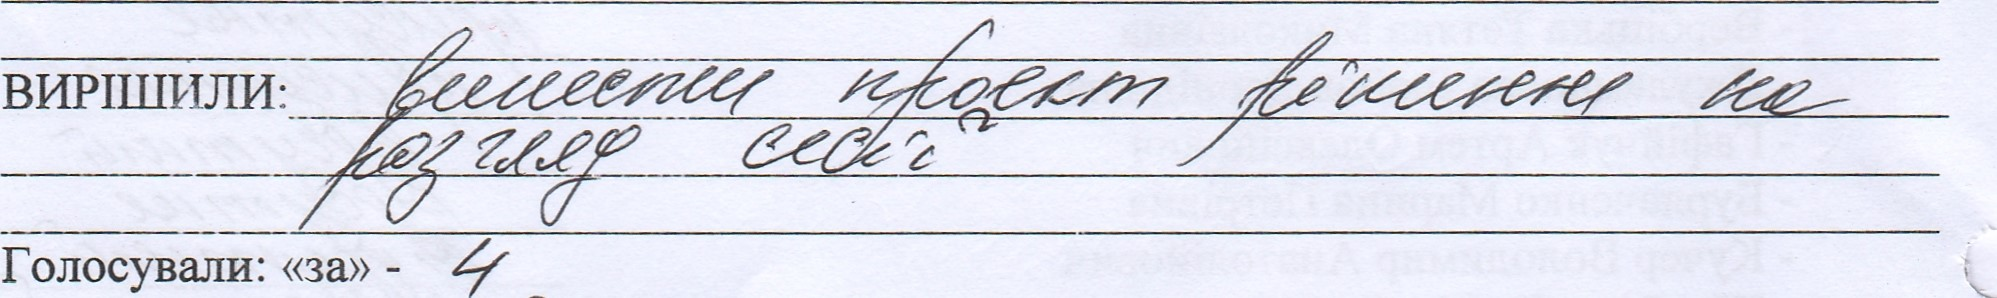 ВИРІШИЛИ: винести проект рішення на
розгляд сесії
Голосували: «за» - 4